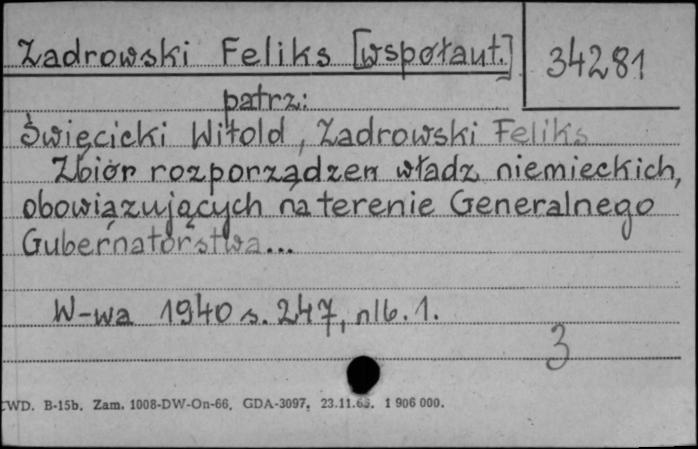 Zadrowski Feliks [współaut.]
34281
patrz:
Święcicki Witold, Zadrowski Feliks
Zbiór rozporządzeń władz niemieckich,
obowiązujących na terenie Generalnego
Gubernatorstwa...
W-wa 1940 s. 247, nlb. 1.
3
WD. B-15b. Zam. 1008-DW-On-66. GDA-3097. 23.11.65. 1 906 000.